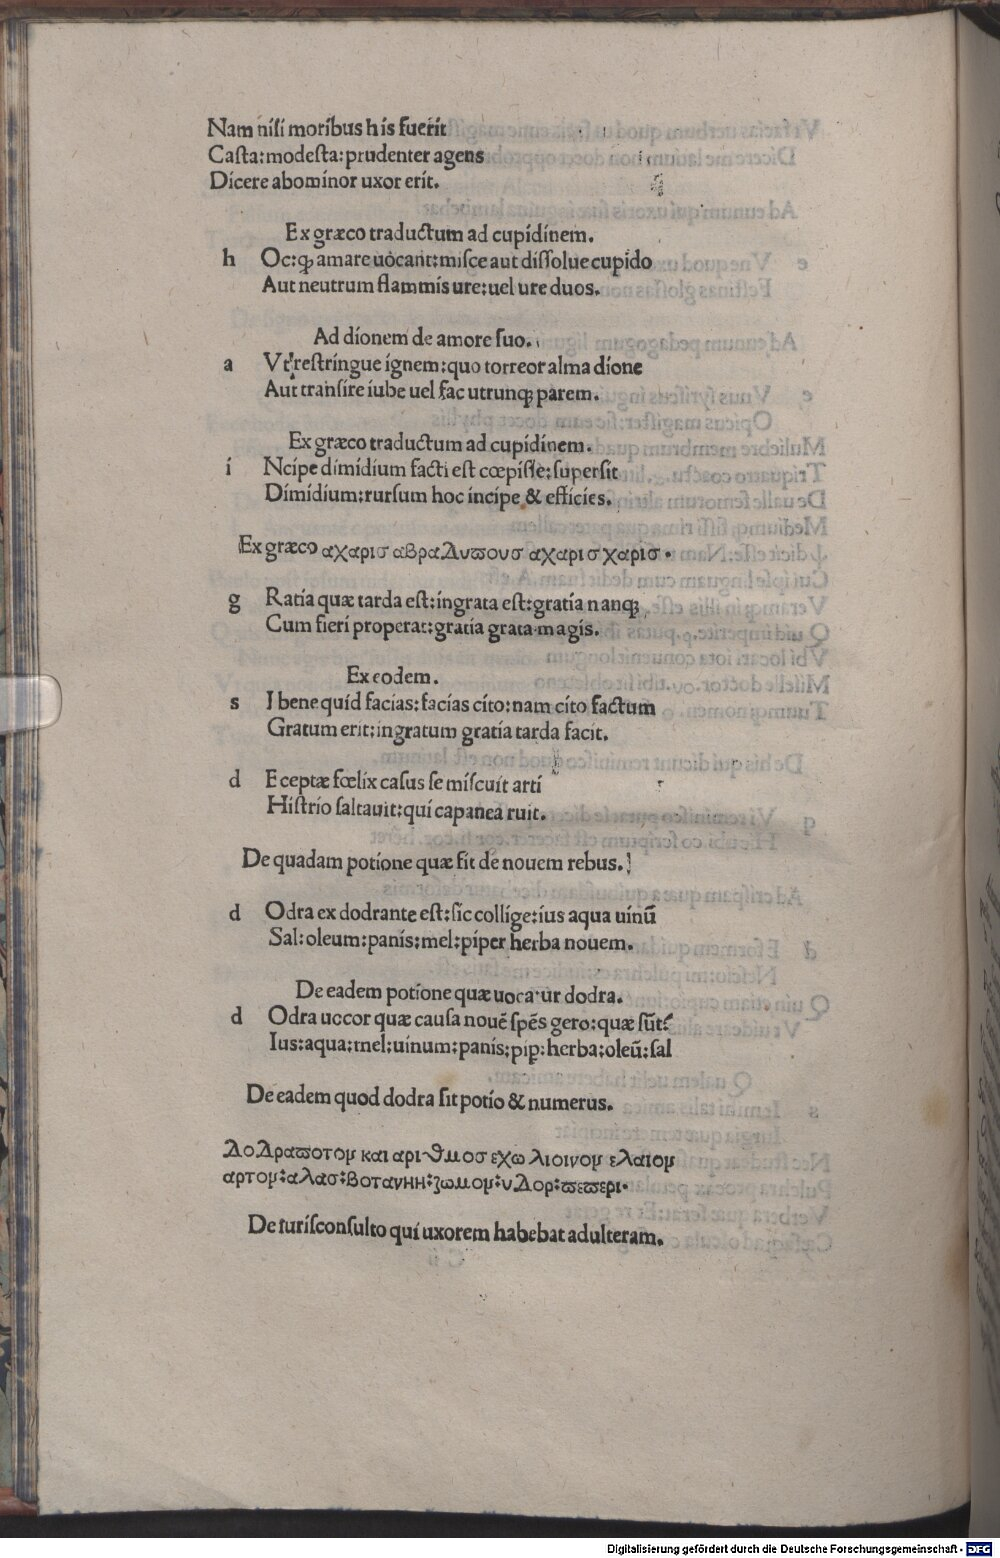 Nam niſi moribus his fuerit
Caſta:modeſta:prudenter agens
Dicere abominor uxor erit.
Ex græco traductum ad cupidinem.
h Oc:ꝙ amare uocant:miſce aut diſſolue cupido
Aut neutrum flammis ure:uel ure duos.
Ad dionem de amore ſuo.
a Vt reſtringue ignem:quo torreor alma dione
Aut tranſire iube uel fac utrunqꝫ parem.
Ex græco traductum ad cupidinem.
i Ncipe dimidium facti eſt cœpiſſe:ſuperſit
Dimidium:rurſum hoc incipe & efficies.
Ex græco αχαρισ αβραΔυϖουσ αχαρισ χαρισ.
g Ratia quæ tarda eſt:ingrata eſt:gratia nanqꝫ
Cum fieri properat:gratia grata magis.
Ex eodem.
s I bene quid facias:facias cito:nam cito factum
Gratum erit:ingratum gratia tarda facit.
d Eceptæ fœlix caſus ſe miſcuit arti
Hiſtrio ſaltauit:qui capanea ruit.
De quadam potione quæ fit de nouem rebus.
d Odra ex dodrante eſt:ſic collige:ius aqua uinū
Sal:oleum:panis:mel:piper herba nouem.
De eadem potione quæ uocatur dodra.
d Odra uccor quæ cauſa nouē ſpēs gero:quæ ſūt?
Ius:aqua:mel:uinum:panis:pip:herba:oleū:ſal
De eadem quod dodra ſit potio & numerus.
ΔοΔραϖοτον και αριϑμοσ εχω λιοινον ελαιον
αρτον:αλασ:βοτανηη:ζωμον:υΔορ:ϖεϖερι.
De iuriſconſulto qui uxorem habebat adulteram.
Digitalisierung gefördert durch die Deutsche Forschungsgemeinschaft - DFG